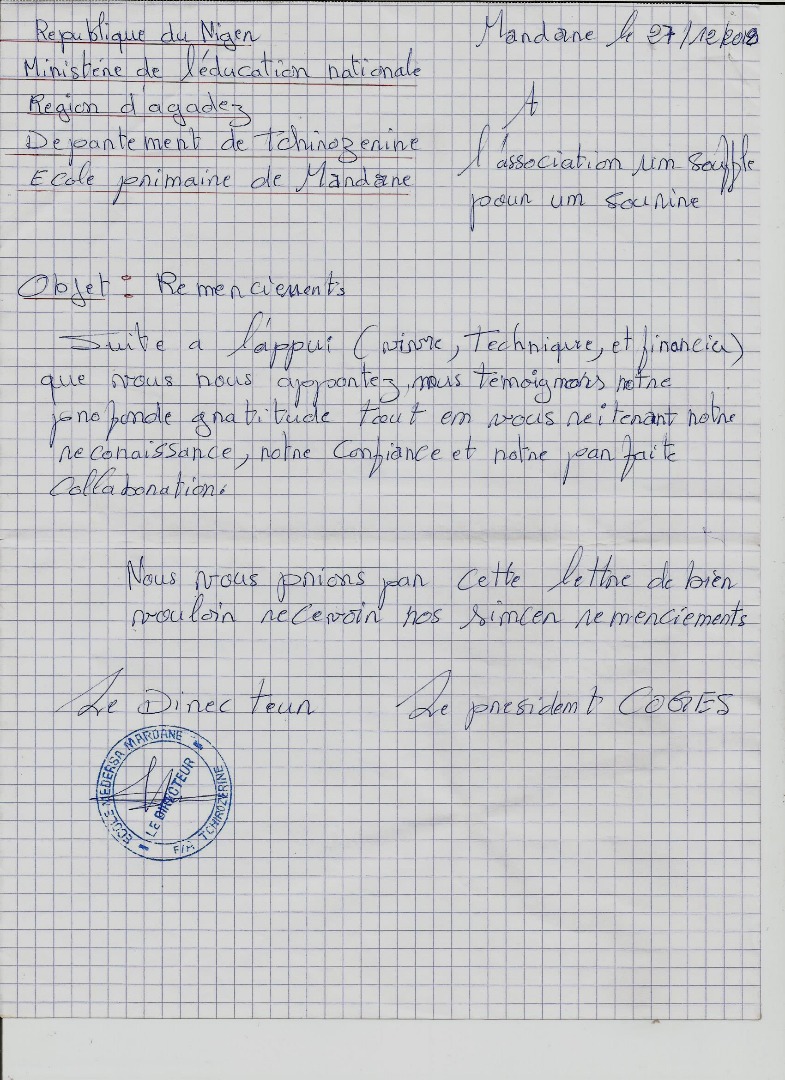 Republique du Niger
Mardane le
Ministère de l'éducation nationale
Region d'agadez
A
Departement de Tchirozerine
l'association um souffle
Ecole primaire de Mardane
pour um sourire
Objet : Remerciements
Suite a l'appui (vivre, Technique, et financier)
que vous nous apportez, nous temoignons notre
profonde gratitude tout em vous reiterant notre
reconaissance, notre Confiance et notre parfaite
Collaboration.
Nous vous prions par cette lettre de bien
vouloir recevoir nos simcer remerciements
Le Directeur
Le president COGES
ECOLE MEDERSA MARDANE
LE DIRECTEUR
TCHIROZERINE